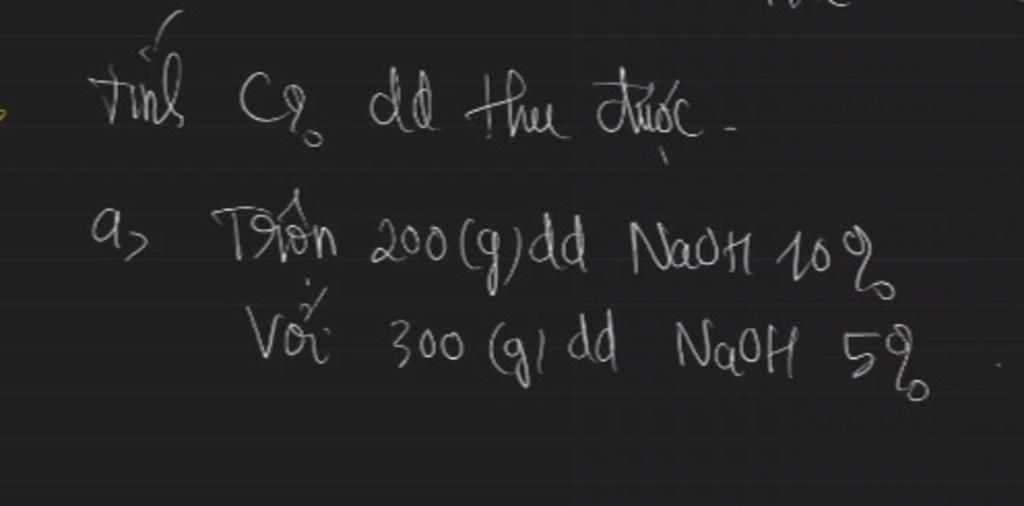 Tính C% dd thu được.
a, Trộn 200(g) dd NaOH 10%
Với 300 (g) dd NaOH 5%